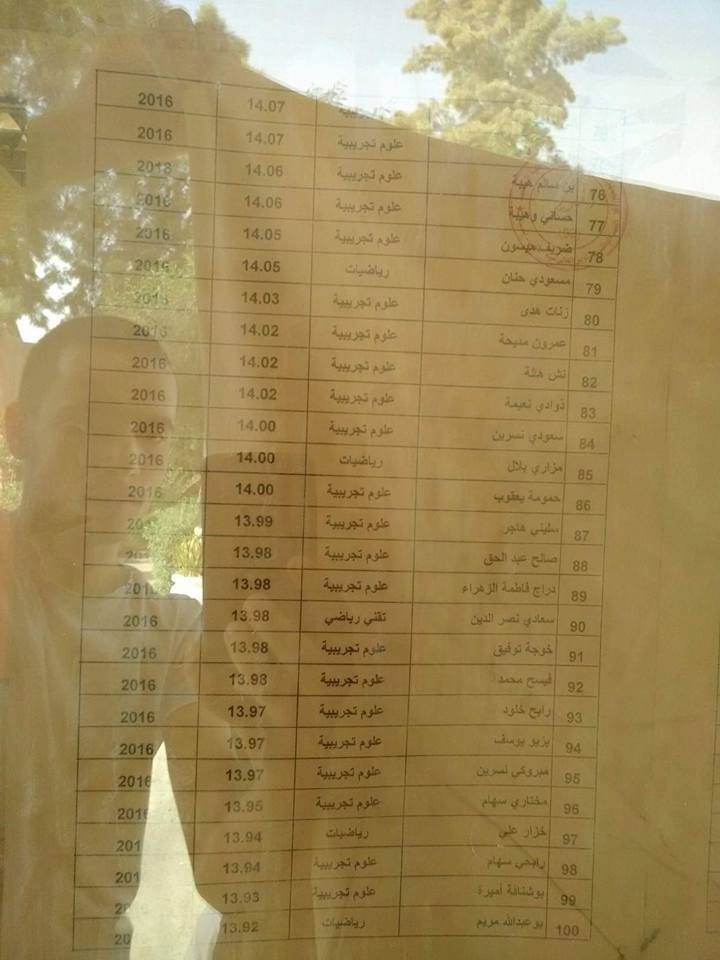 2016 14.07
علوم تجريبية 14.07 2016
76 بن سالم هيبة علوم تجريبية 14.06 2016
77 حساني وهيبة علوم تجريبية 14.06 2016
78 ضريف ميسون علوم تجريبية 14.05 2016
79 مسعودي حنان رياضيات 14.05 2016
80 زنات هدى علوم تجريبية 14.03 2016
81 عمرون مديحة علوم تجريبية 14.02 2016
82 نش هالة علوم تجريبية 14.02 2016
83 ذوادي نعيمة علوم تجريبية 14.02 2016
84 سعودي نسرين علوم تجريبية 14.00 2016
85 مزاري بلال رياضيات 14.00 2016
86 حمومة يعقوب علوم تجريبية 14.00 2016
87 سليني هاجر علوم تجريبية 13.99
88 صالح عبد الحق علوم تجريبية 13.98
89 دراج فاطمة الزهراء علوم تجريبية 13.98 2016
90 سعادي نصر الدين تقني رياضي 13.98 2016
91 خوجة توفيق علوم تجريبية 13.98 2016
92 فيسح محمد علوم تجريبية 13.98 2016
93 رابح خلود علوم تجريبية 13.97 2016
94 يزيو يوسف علوم تجريبية 13.97 2016
95 مبروكي نسرين علوم تجريبية 13.97 2016
96 مختاري سهام علوم تجريبية 13.95 2016
97 خزار علي رياضيات 13.94
98 رابحي سهام علوم تجريبية 13.94
99 بوشنافة أميرة علوم تجريبية 13.93
100 بوعبدالله مريم رياضيات 13.92